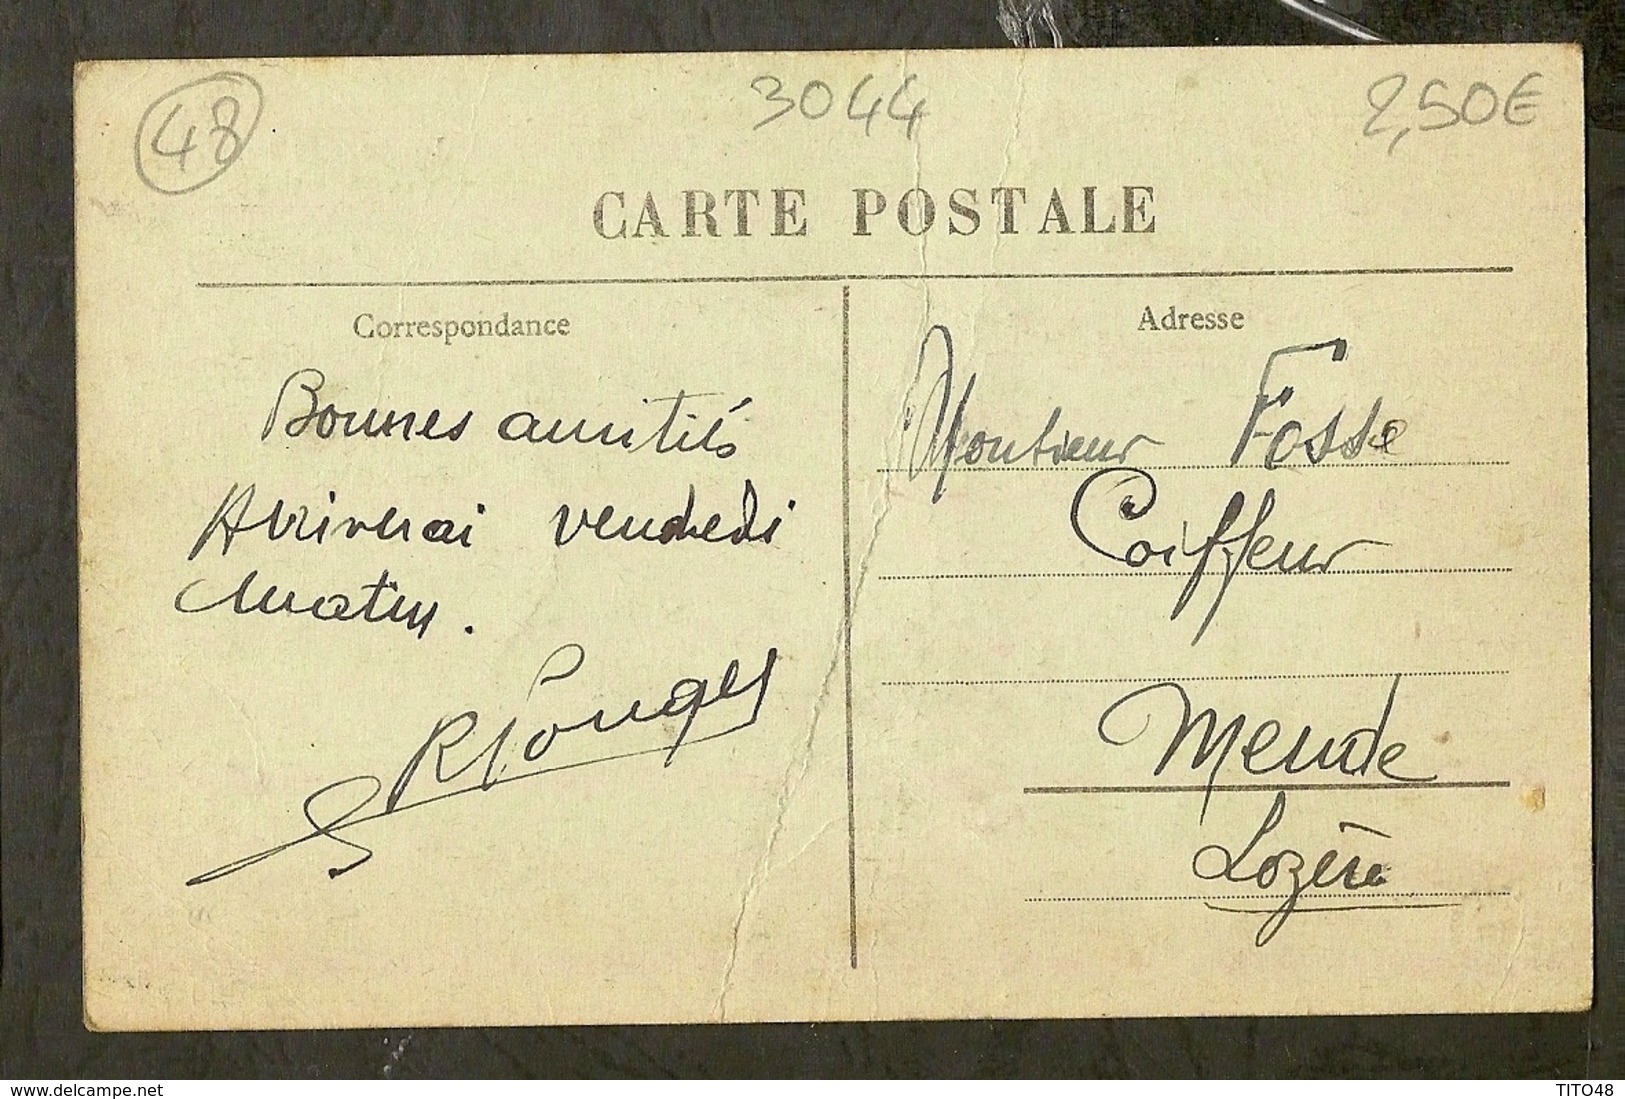 48
3044
2,50€
CARTE POSTALE
Correspondance
Bonnes amitiés
Arriverai vendredi
matin.
Adresse
Monsieur Fosse
Coiffeur
Mende
Lozère
www.delcampe.net
TITO48